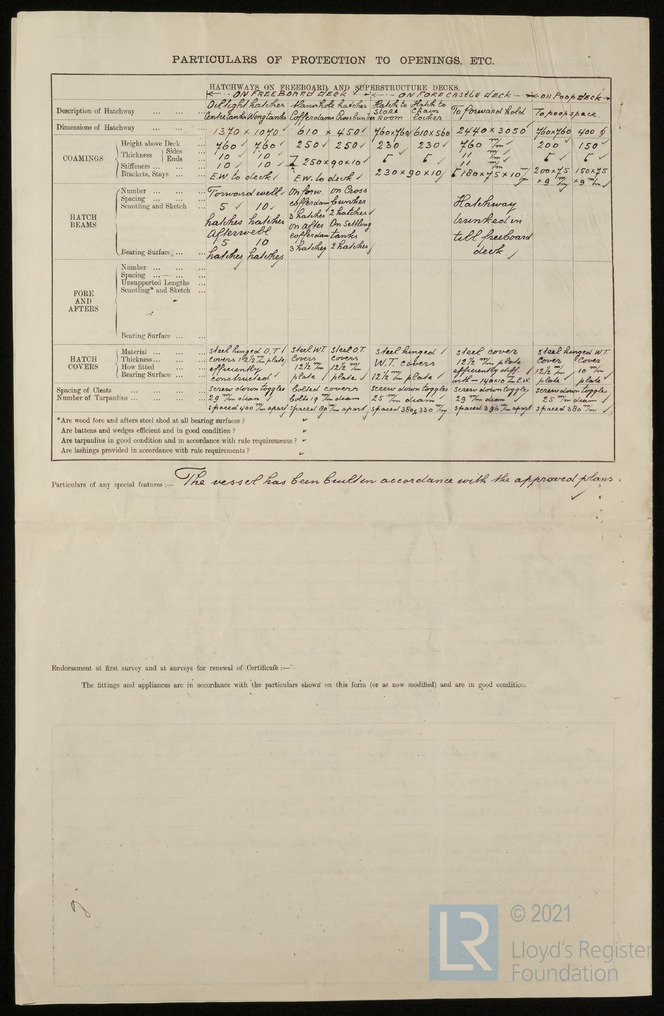 PARTICULARS OF PROTECTION TO OPENINGS, ETC.
HATCHWAYS ON FREEBOARD AND SUPERSTRUCTURE DECKS.
ON FREEBOARD deck ON FORECASTLE deck on Poop deck
Description of Hatchway Oiltight hatches Centre tanks Wing tanks Manhole hatches Cofferdams Hatch to Store Room Hatch to Chain Locker To forward hold To poop space
Dimensions of Hatchway 1370 x 1070 610 x 450 760x760 610x560 2440 x 3050 760x760 400
COAMINGS
Height above Deck 760 760 250 250 230 230 760 m/m 200 150
Thickness Sides 10 10 11 m/m
Ends 10 10 250 x 90 x 10 11 m/m
Stiffeners 230 x 90 x 10 180 x 75 x 10 m/m 200 x 75 x 9 m/m 150 x 75 x 9 m/m
Brackets, Stays E.W. to deck E.W. to deck
HATCH BEAMS
Number
Spacing
Scantling and Sketch
Bearing Surface
Forward well
5 10
hatches hatches
After well
15 10
hatches hatches
on forw. cofferdam
3 hatches
on after cofferdam
3 hatches
on Cross bunker
2 hatches
On Settling tanks
2 hatches
Hatchway
trunked in
till freeboard
deck
FORE AND AFTERS
Number
Spacing
Unsupported Lengths
Scantling* and Sketch
Bearing Surface
HATCH COVERS
Material
Thickness
How fitted
Bearing Surface
Steel hinged O.T. covers 12½ m/m plate efficiently constructed
Steel W.T. covers 12½ m/m plate
Steel O.T. covers 12½ m/m plate
Steel hinged W.T. covers 12½ m/m plate
Steel cover 12½ m/m plate efficiently stiff. with 140x10 m/m E.W.
Steel hinged W.T. cover 12½ m/m plate
Cover 10 m/m plate
Spacing of Cleats
Number of Tarpaulins
Screw down toggles 29 m/m diam spaced 400 m/m apart
Bolted covers bolts 19 m/m diam spaced 80 m/m apart
Screw down toggles 25 m/m diam spaced 380 & 330 m/m
Screw down toggles 29 m/m diam spaced 396 m/m apart
Screw down toggles 25 m/m diam spaced 380 m/m
*Are wood fore and afters steel shod at all bearing surfaces?
Are battens and wedges efficient and in good condition?
Are tarpaulins in good condition and in accordance with rule requirements?
Are lashings provided in accordance with rule requirements?
Particulars of any special features:— The vessel has been built in accordance with the approved plans.
Endorsement at first survey and at surveys for renewal of Certificate:—
The fittings and appliances are in accordance with the particulars shown on this form (or as now modified) and are in good condition.
LR
© 2021
Lloyd's Register
Foundation